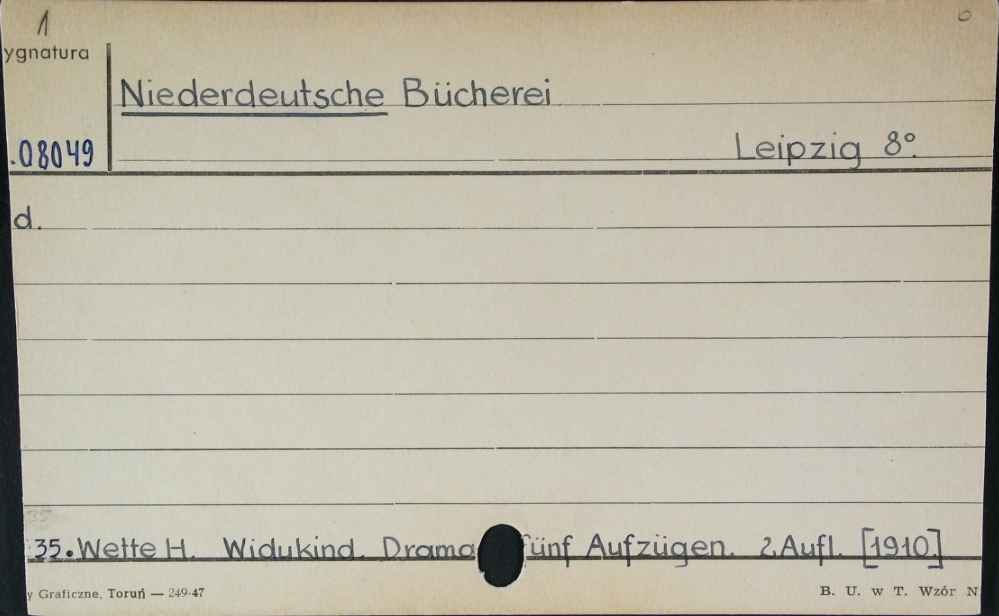 1
ygnatura
Niederdeutsche Bücherei
.08049
Leipzig 8°.
d.
35. Wette H. Widukind. Drama fünf Aufzügen. 2. Aufl. [1910.]
y Graficzne, Toruń — 249-47
B. U. w T. Wzór N